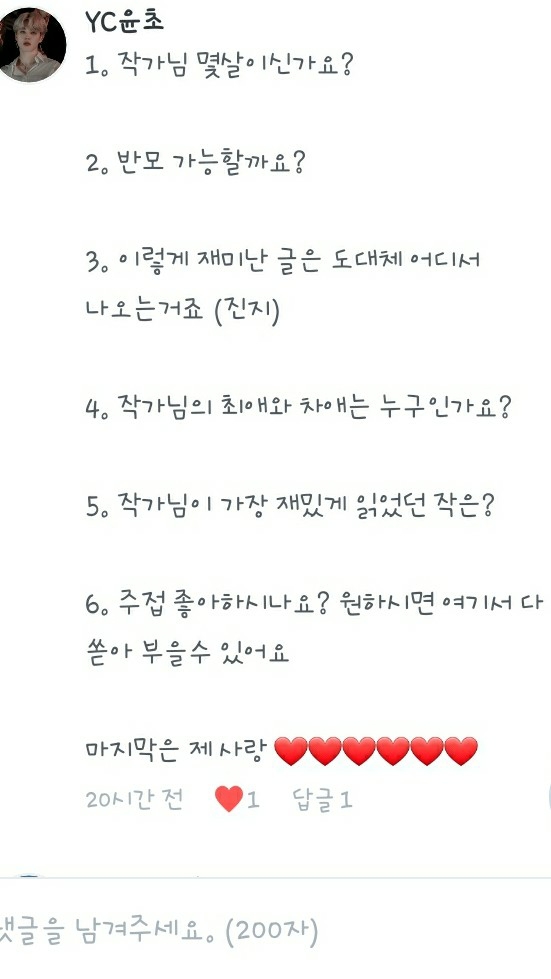 YC윤초
1. 작가님 몇살이신가요?
2. 반모 가능할까요?
3. 이렇게 재미난 글은 도대체 어디서
나오는거죠 (진지)
4. 작가님의 최애와 차애는 누구인가요?
5. 작가님이 가장 재밌게 읽었던 작은?
6. 주접 좋아하시나요? 원하시면 여기서 다
쏟아 부을수 있어요
마지막은 제 사랑 ❤️❤️❤️❤️❤️❤️
20시간 전 ❤️1 답글 1
댓글을 남겨주세요. (200자)